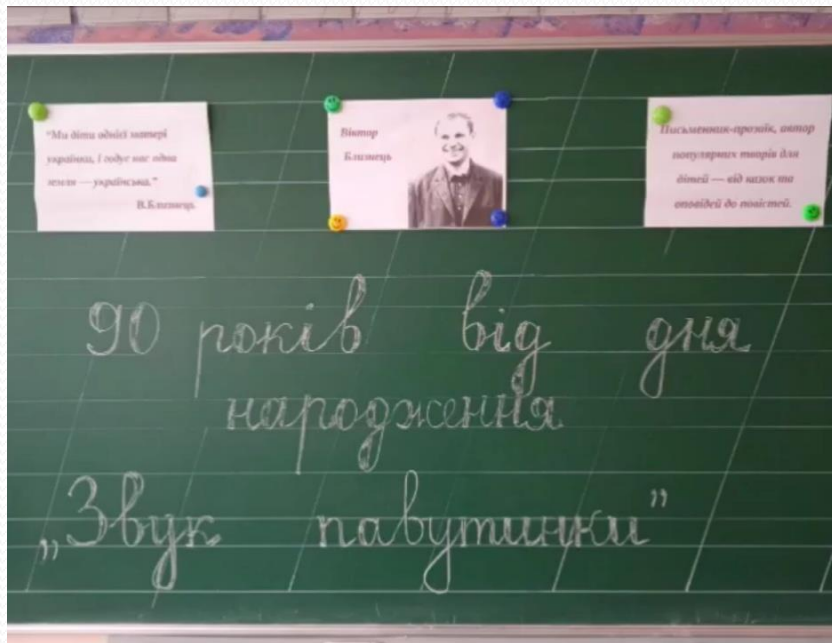 "Ми діти однієї матері
українки, і годує нас одна
земля — українська."
В.Близнець
Віктор
Близнець
Письменник-прозаїк, автор
популярних творів для
дітей — від казок та
оповідей до повістей.
90 років від дня
народження
„Звук павутинки”